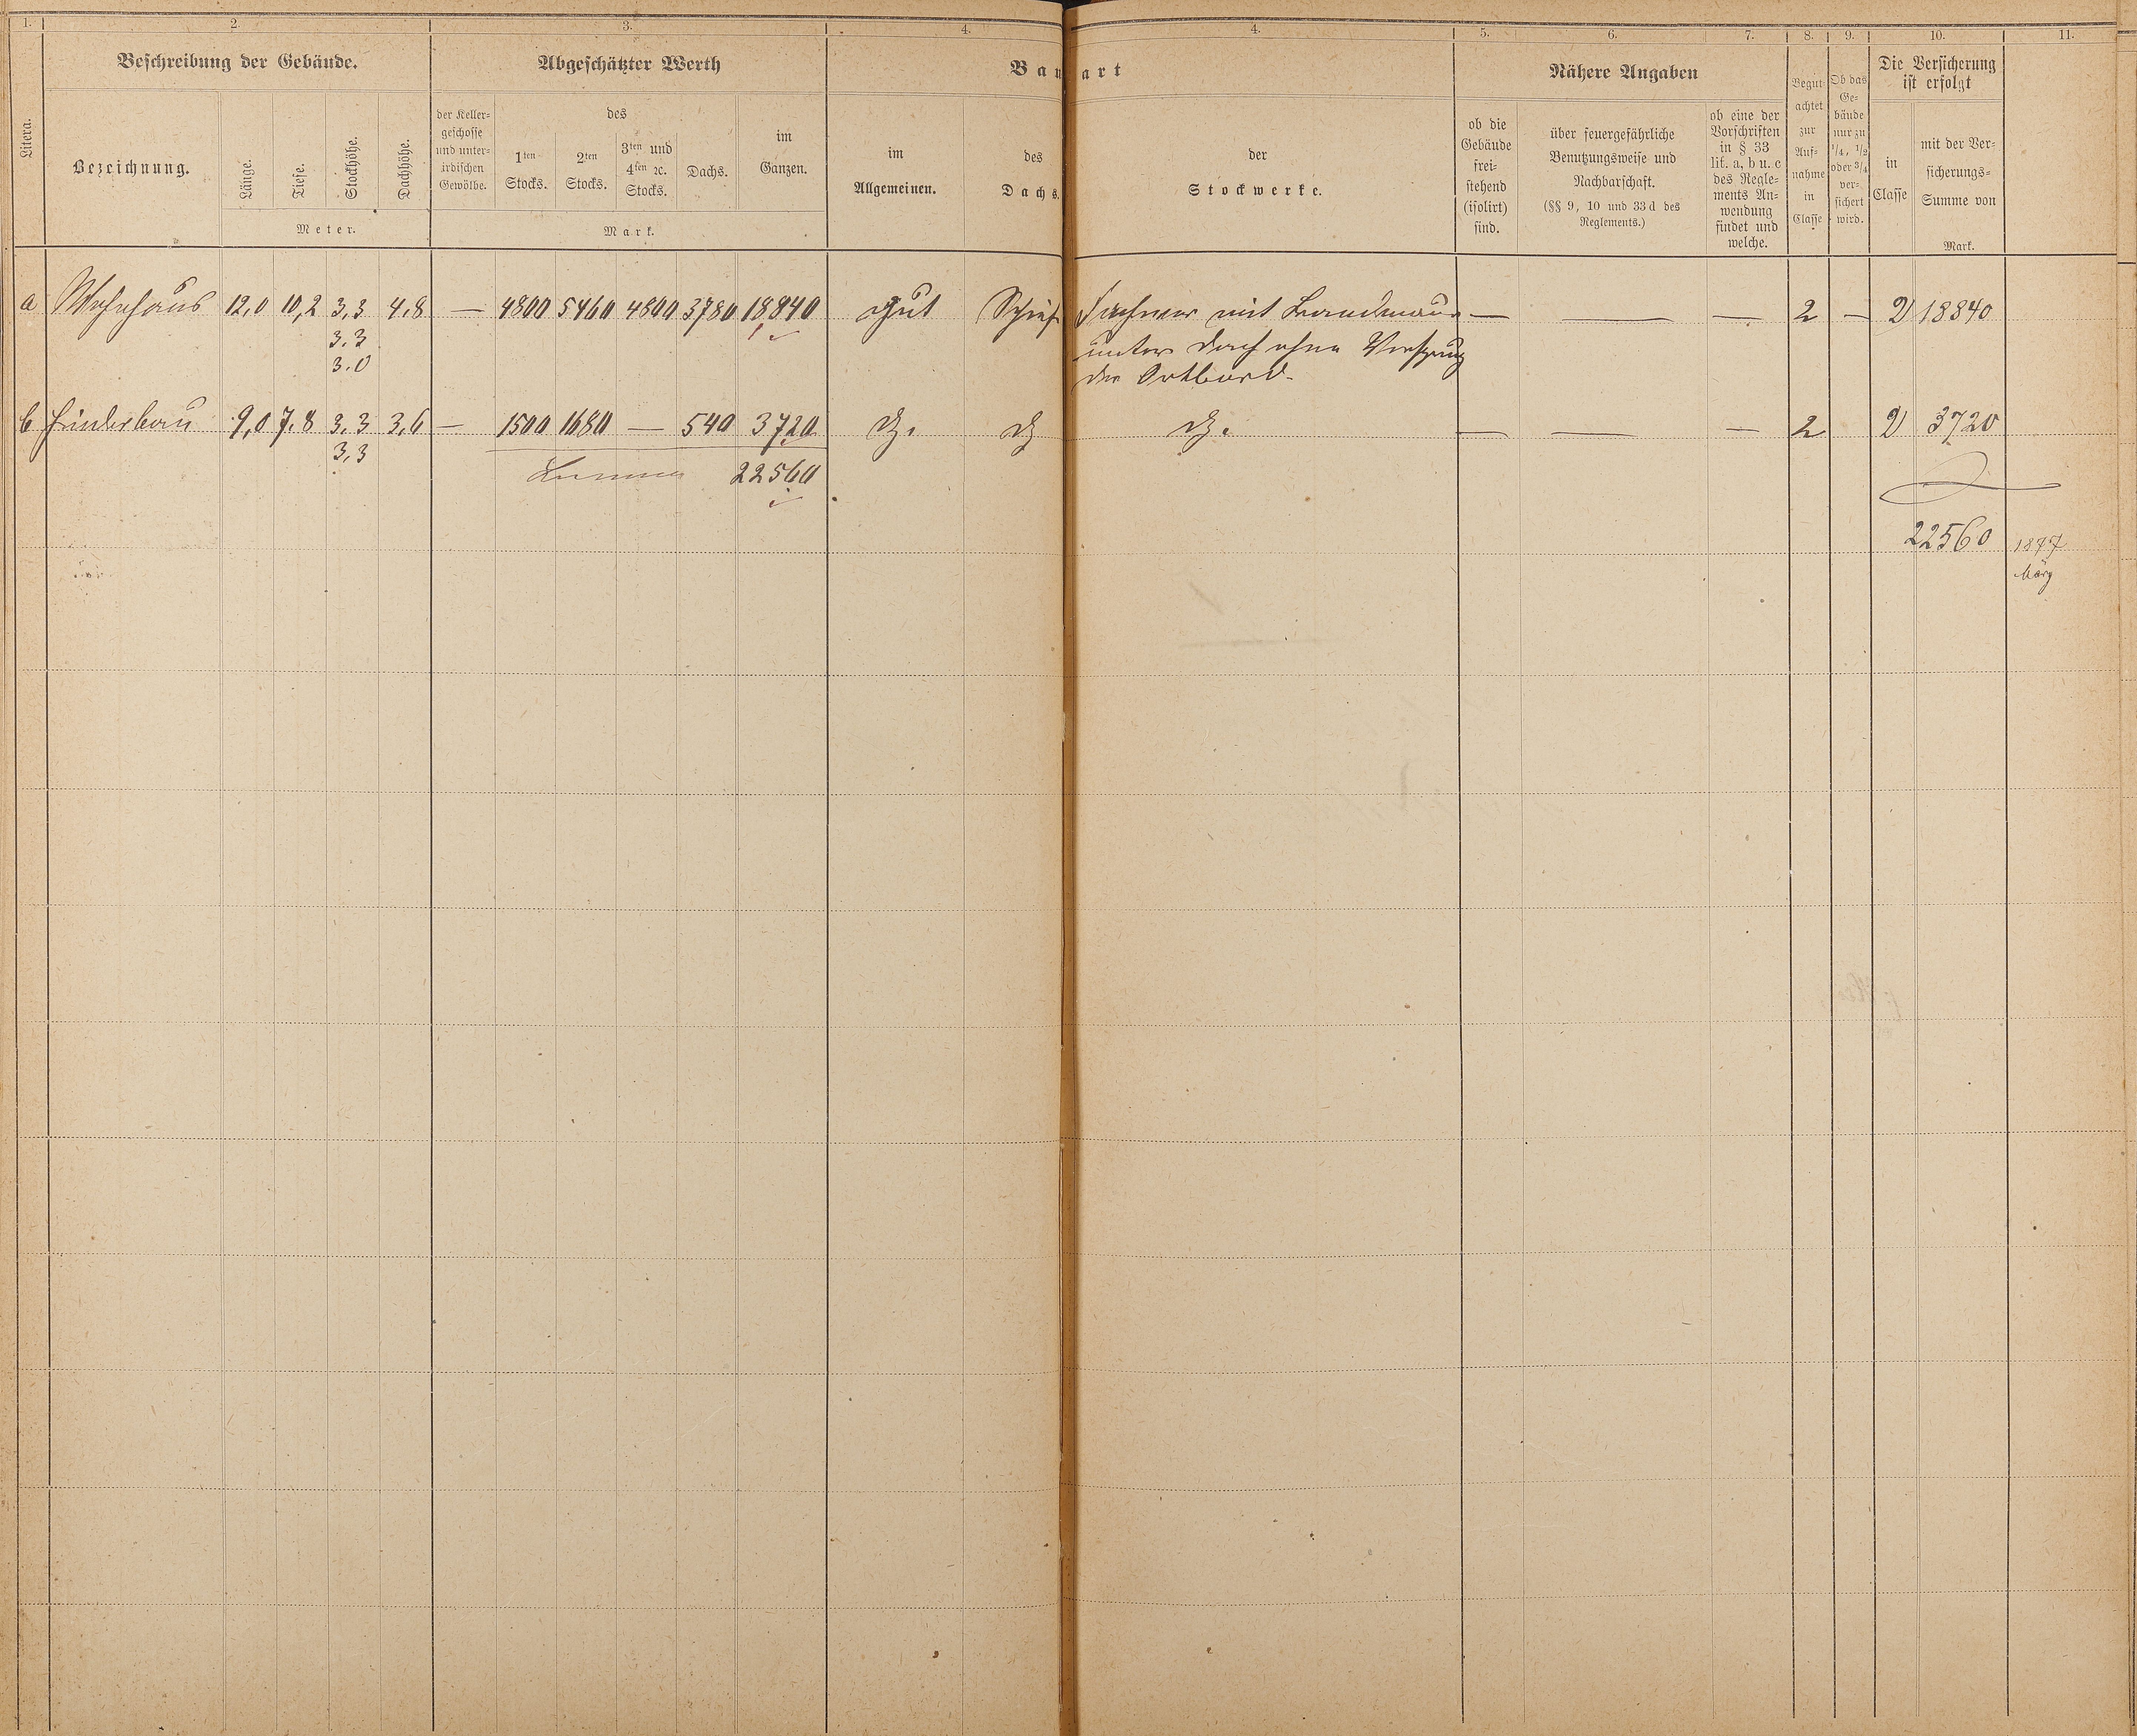 1. 2. 3. 4. 4. 5. 6. 7. 8. 9. 10. 11.
Beschreibung der Gebäude. Abgeschätzter Werth Bauart Nähere Angaben
Litera.
Bezeichnung.
Länge.
Tiefe.
Stockhöhe.
Dachhöhe.
Meter.
der Keller-
geschosse
und unter-
irdischen
Gewölbe.
des
1ten
Stocks.
2ten
Stocks.
3ten und
4ten ꝛc.
Stocks.
Dachs.
im
Ganzen.
Mark.
im
Allgemeinen.
des
Dachs.
der
Stockwerke.
ob die
Gebäude
frei-
stehend
(isolirt)
sind.
über feuergefährliche
Benutzungsweise und
Nachbarschaft.
(§§ 9, 10 und 33 d des
Reglements.)
ob eine der
Vorschriften
in § 33
lit. a, b u. c
des Regle-
ments An-
wendung
findet und
welche.
Begut-
achtet
zur
Auf-
nahme
in
Classe
Ob das
Ge-
bäude
nur zu
1/4, 1/2
oder 3/4
ver-
sichert
wird.
Die Versicherung
ist erfolgt
in
Classe
mit der Ver-
sicherungs-
Summe von
Mark.
a Wohnhaus 12,0 10,2 3,3 4,8 — 4800 5460 4800 3780 18840 gut Schief mit — — — 2 — 2 18840
3.3 unter Dach ohne Vorsprung
3.0 der Ortbord.
b Hinterbau 9,0 7,8 3,3 3,6 — 1500 1680 — 540 3720 dg. dg dg. — — — 2 2 3720
3,3
Summa 22560
22560 1897
März